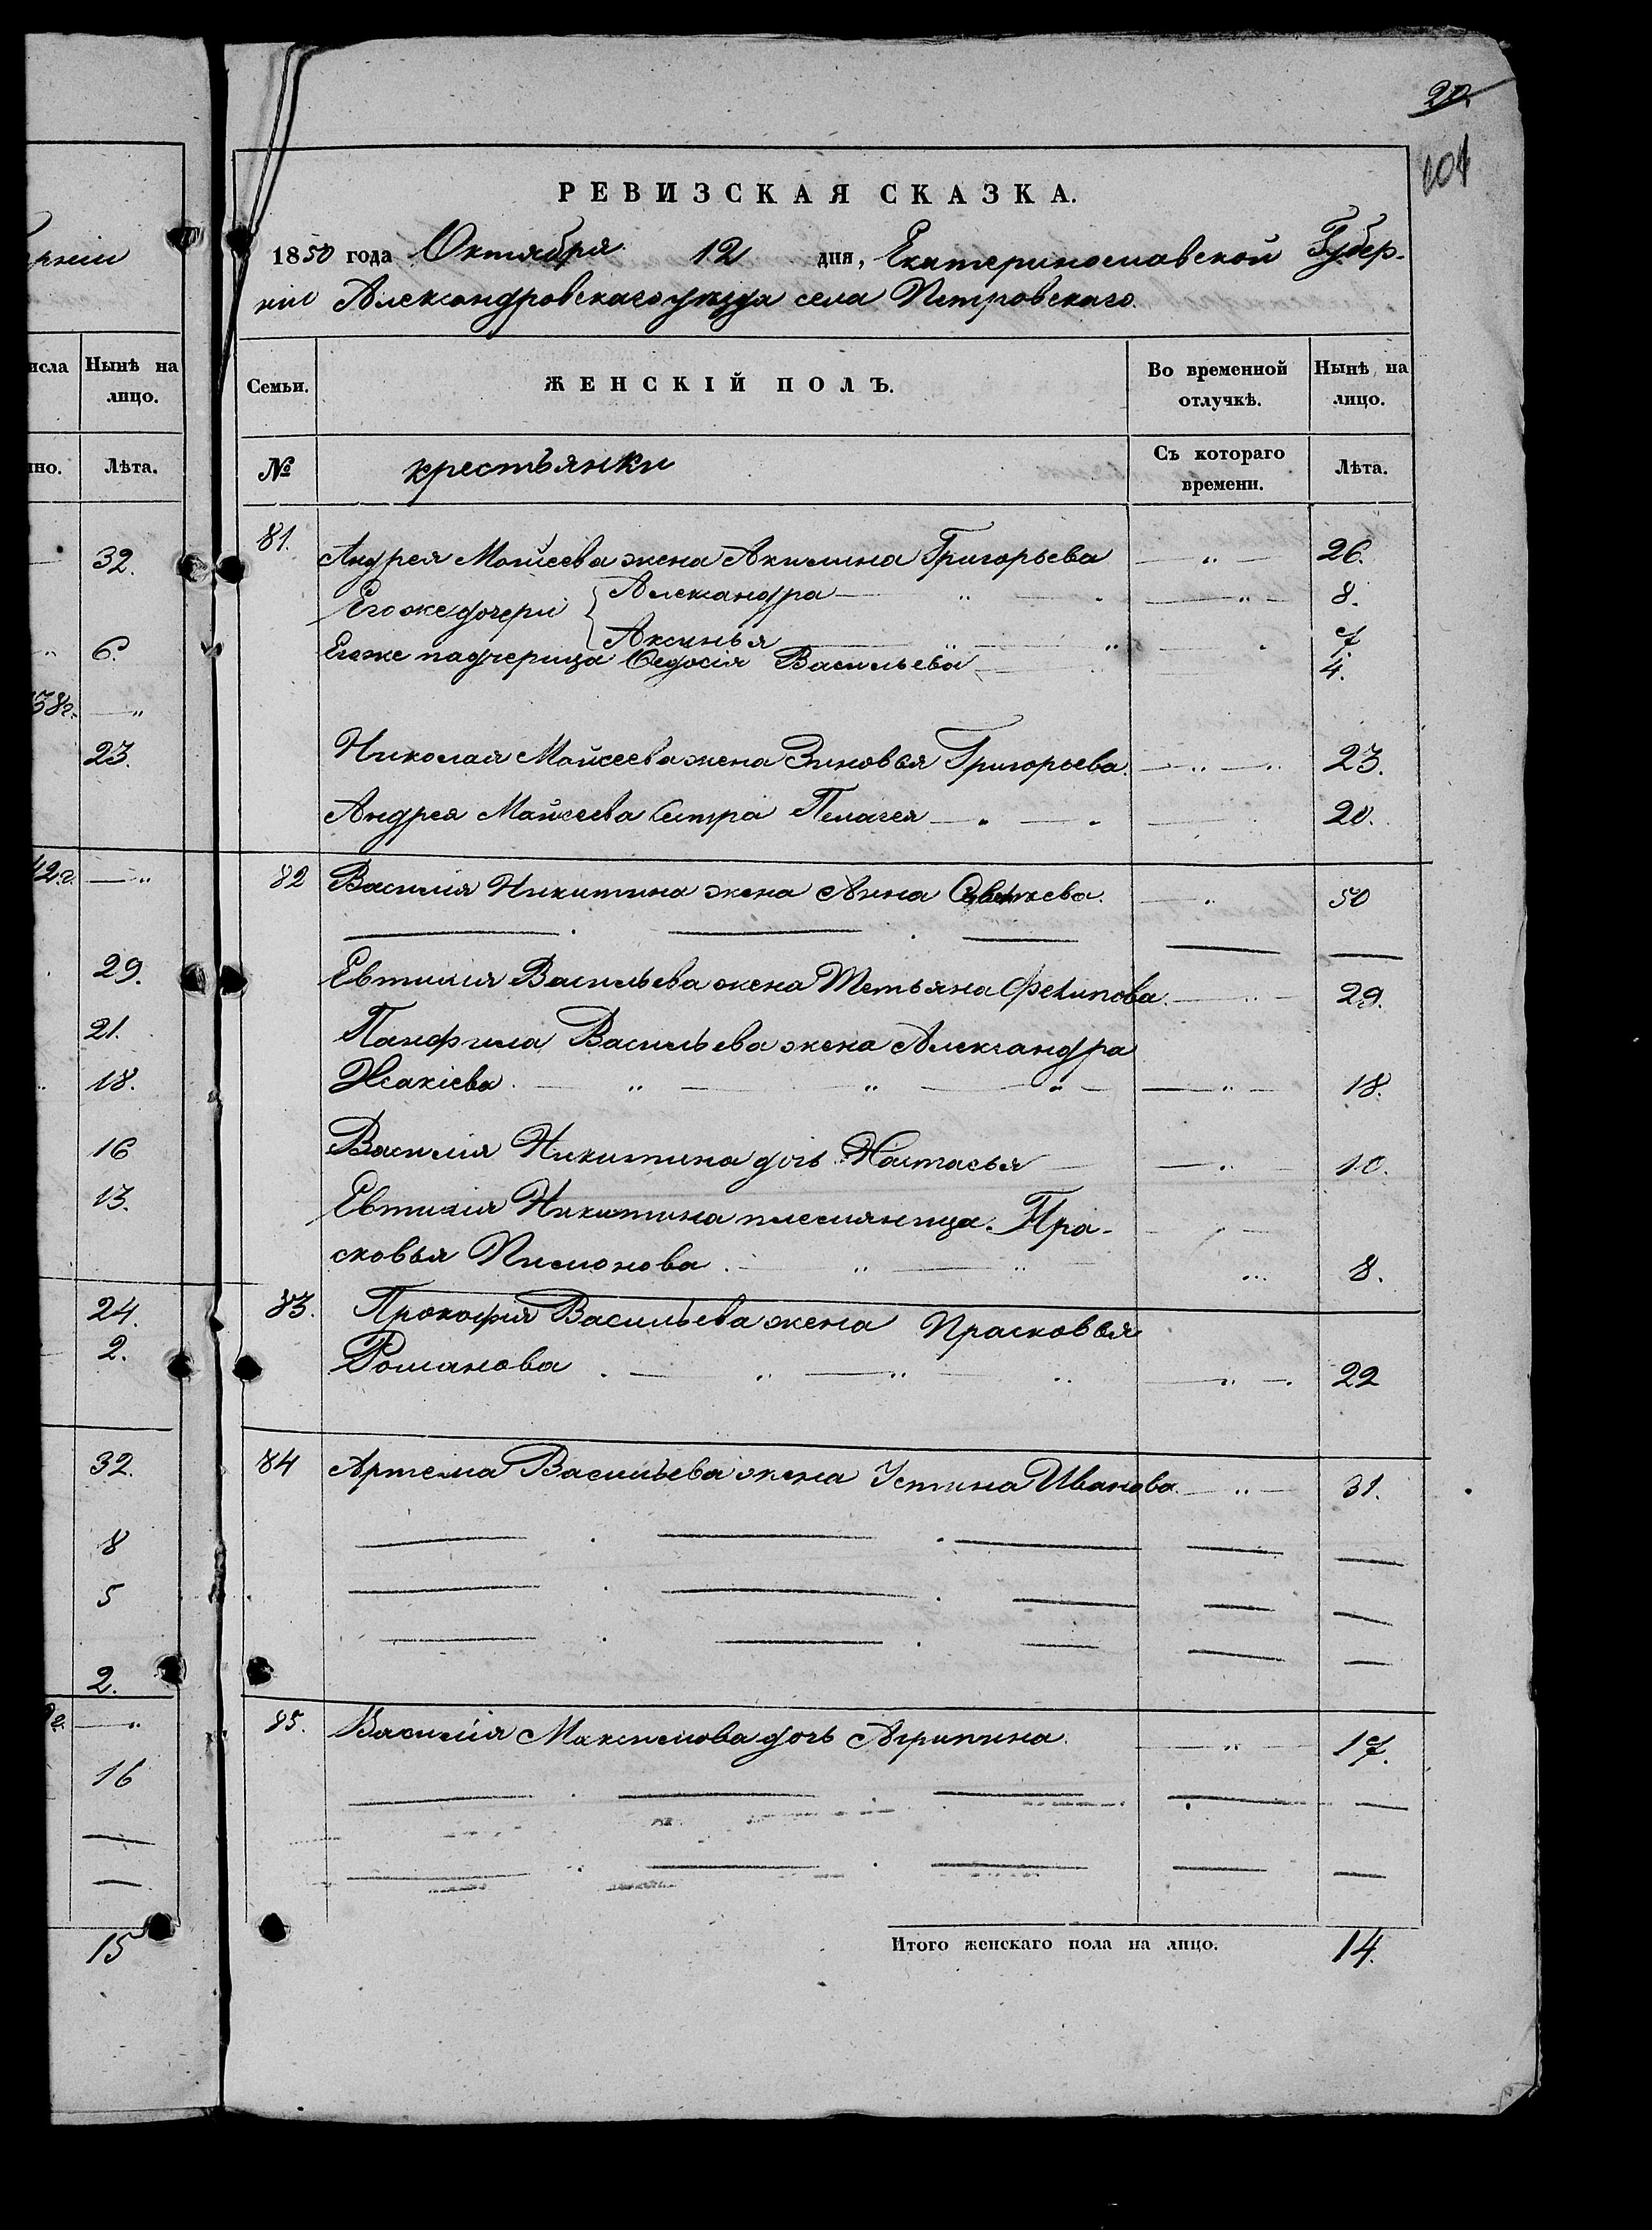 20.
101
РЕВИЗСКАЯ СКАЗКА.
1850 года Октября 12 дня, Екатеринославской Губер-
ніи Александровскаго уѣзда села Петровскаго.
рніи
исла
Нынѣ на
лицо.
но.
Лѣта.
32.
6.
38г.
23.
42.г.
29.
21.
18.
16
13.
24.
2.
32.
8
5
2.
г.
16
15
Семьи.
ЖЕНСКІЙ ПОЛЪ.
Во временной
отлучкѣ.
Нынѣ на
лицо.
№
крестьянки
Съ котораго
времени.
Лѣта.
81. Андрея Мойсеева жена Акилина Григорьева 26.
Его же дочери Александра 8.
Аксинья 7.
Его же падчерица Федосія Васильева 4.
Николая Мойсеева жена Зиновья Григорьева. 23.
Андрея Мойсеева сестра Пелагея 20.
82 Василія Никитина жена Анна 50
Евтихія Васильева жена Тетьяна Филипова. 29.
Панфила Васильева жена Александра
Исакіева. 18.
Василія Никитина дочь Настасья 10.
Евтихія Никитина племянница Пра-
сковья Пимонова. 8.
83. Прокофія Васильева жена Прасковья
Романова. 22
84 Артема Васильева жена Устина Иванова. 31.
85. Василія Максимова дочь Агрипина. 17.
Итого женскаго пола на лицо. 14.